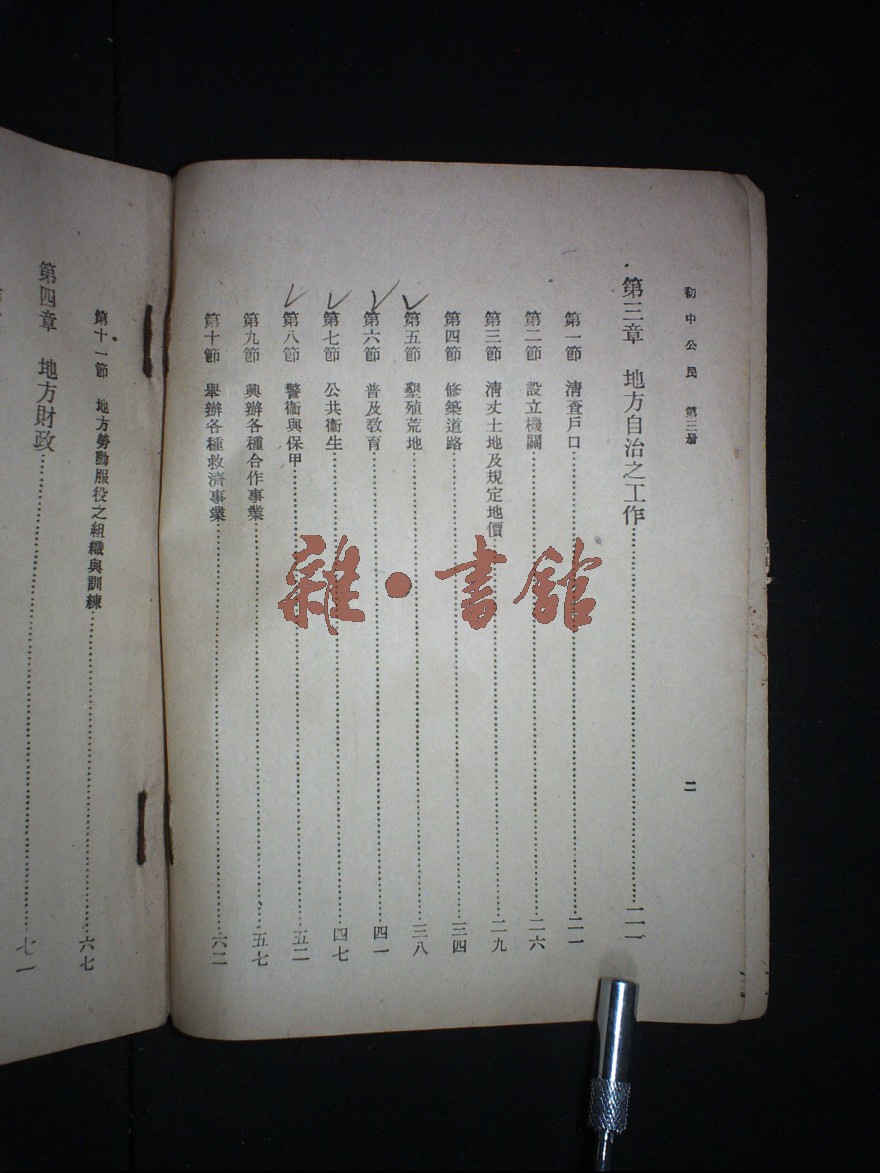 初中公民 第三册
二
第三章 地方自治之工作……二一
第一節 清查戶口……二一
第二節 設立機關……二六
第三節 清丈土地及規定地價……二九
第四節 修築道路……三四
第五節 墾殖荒地……三八
第六節 普及教育……四一
第七節 公共衞生……四七
第八節 警衞與保甲……五二
第九節 興辦各種合作事業……五七
第十節 舉辦各種救濟事業……六二
第十一節 地方勞動服役之組織與訓練……六七
第四章 地方財政……七一
雜·書館